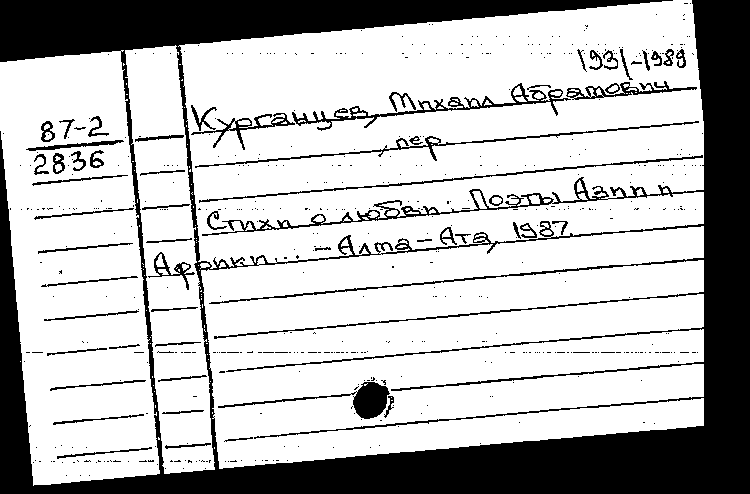 1931-1989
87-2
2836
Курганцев, Михаил Абрамович
, пер.
Стихи о любви: Поэты Азии и
Африки... - Алма-Ата, 1987.